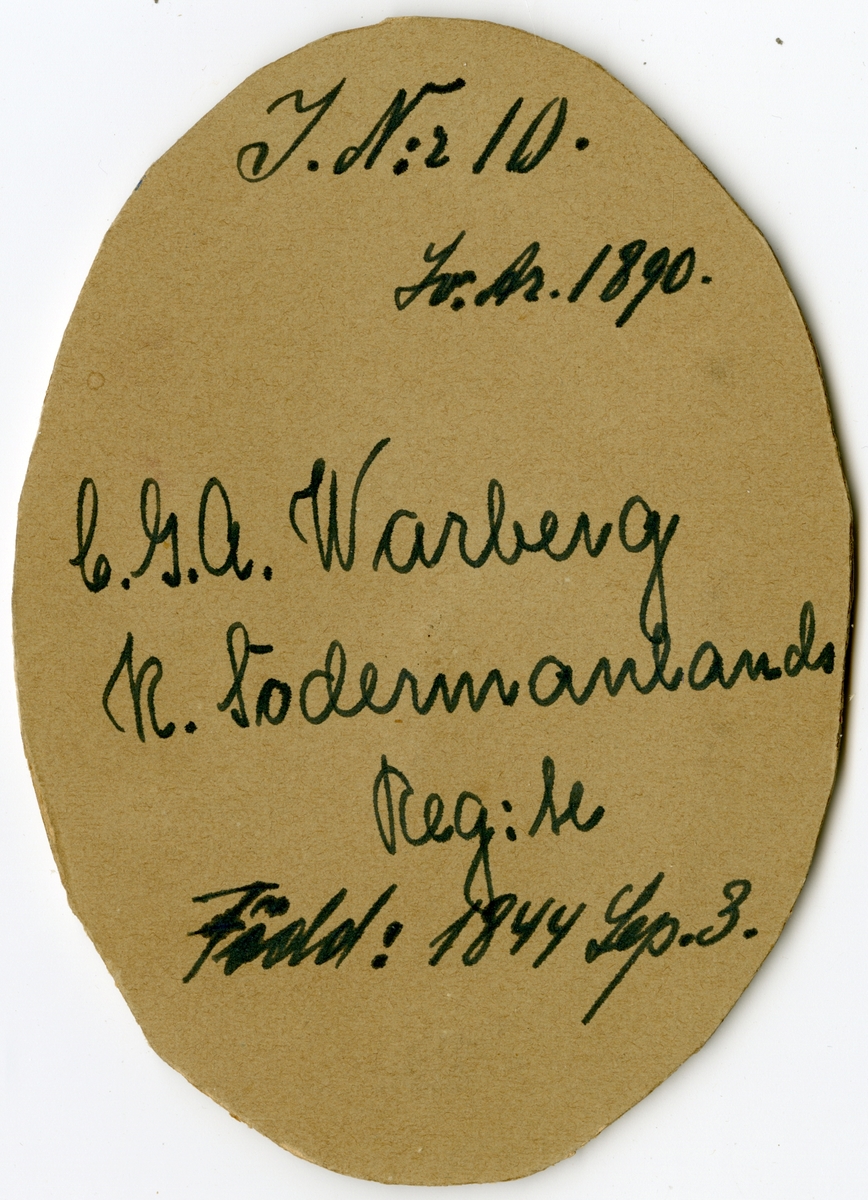 J. N:r 10.
Lv. År. 1890.
C.G.A. Warberg
K. Södermanlands
Reg:te
Född: 1844 Sep. 3.